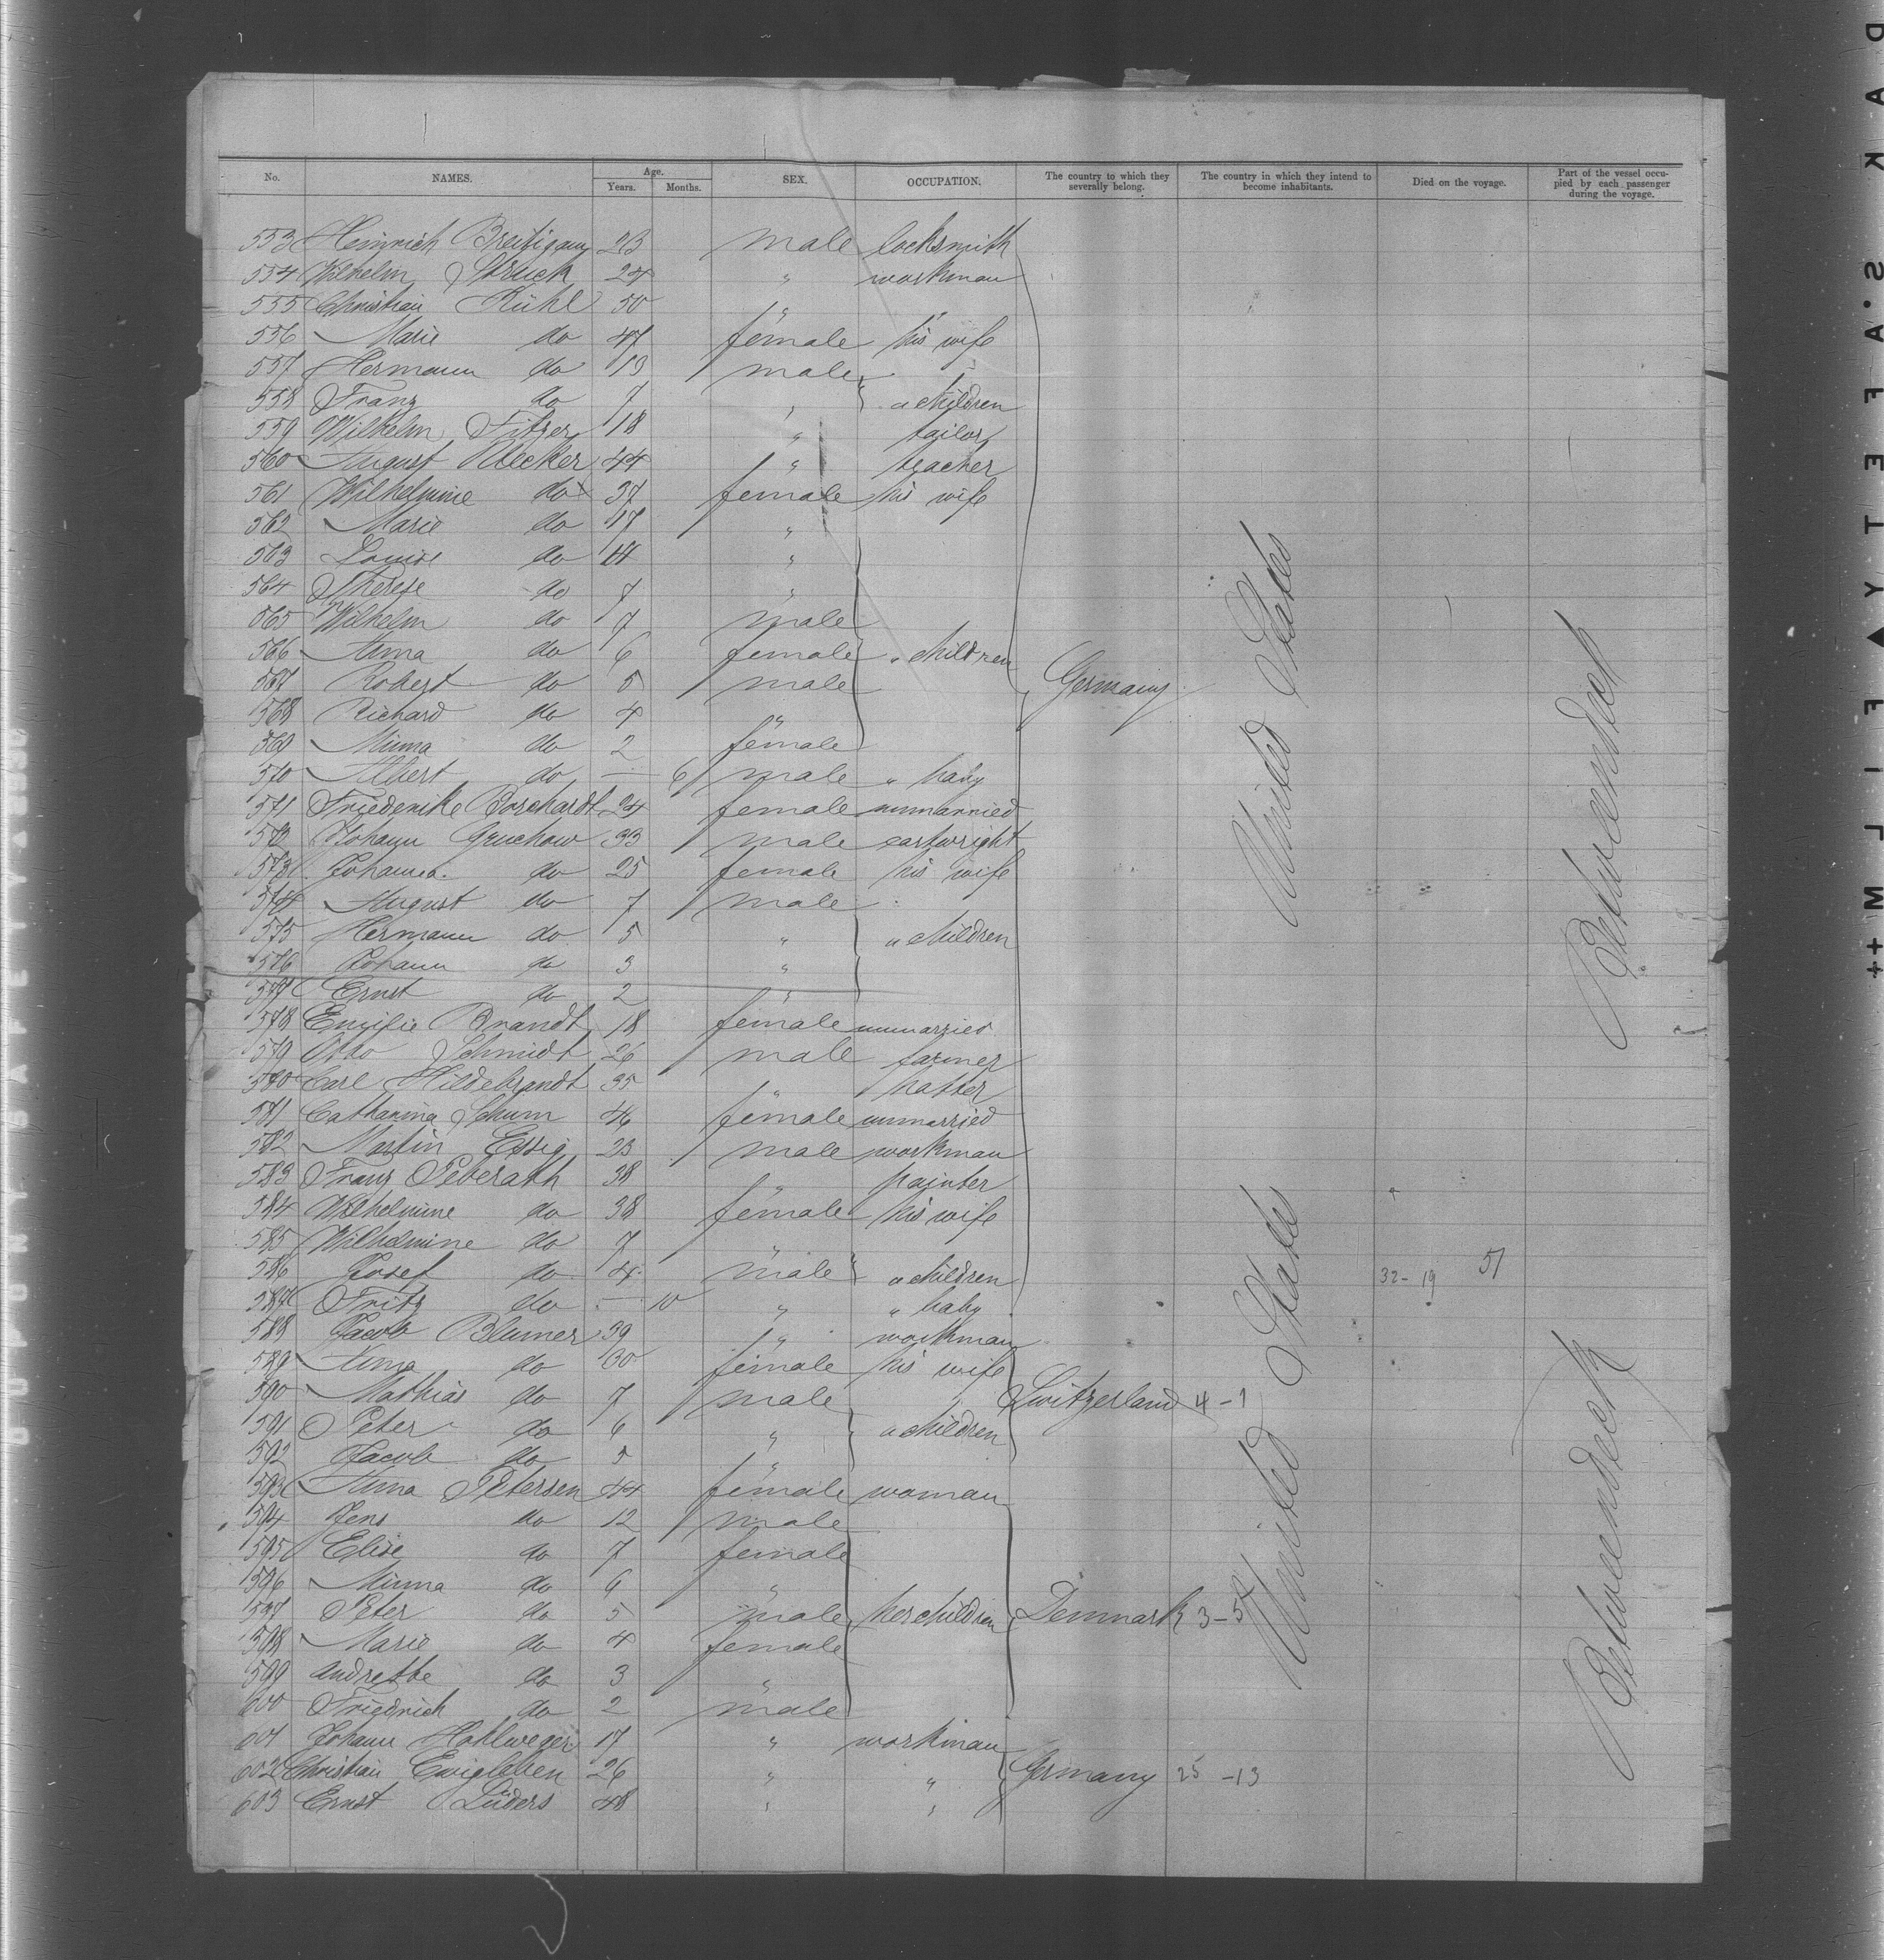 No. NAMES. Age. Years. Months. SEX. OCCUPATION. The country to which they severally belong. The country in which they intend to become inhabitants. Died on the voyage. Part of the vessel occupied by each passenger during the voyage.
553 Heinrich 23 male locksmith
554 Wilhelm Struck 24 " workman
555 Christian Rühl 50 " "
556 Marie do 47 female his wife
557 Hermann do 13 male
558 Franz do 7 " " children
559 Wilhelm Fitzer 18 " tailor
560 August Uecker 44 " teacher
561 Wilhelmine do 37 female his wife
562 Marie do 17 "
563 Louise do "
564 Therese do 7 "
565 Wilhelm do 7 male
566 Anna do 6 female " children
567 Robert do 5 male Germany
568 Richard do 4 "
569 Minna do 2 female
570 Albert do — 6 male " baby
571 Friederike Borchardt 24 female unmarried
572 Johann Gruchow 33 male cartwright
573 Johanna do 25 female his wife
574 August do 7 male
575 Hermann do 5 " " children
576 Johann do 3 "
577 Ernst do 2 "
578 Emilie Brandt 18 female unmarried
579 Otto Schmidt 26 male farmer
580 Carl Hildebrandt 35 " hatter
581 Catharina Schum female unmarried
582 Martin Essig 23 male workman
583 Franz Peberath 38 " painter
584 Wilhelmine do 38 female his wife
585 Wilhelmine do 7 "
586 Josef do 4 male " children 32-19 51
587 Fritz do — 10 " " baby
588 Jacob Blumer 39 " workman
589 Anna do 30 female his wife
590 Mathias do 7 male Switzerland 4-1
591 Peter do 6 " " children
592 Jacob do 5 "
593 Anna Petersen 44 female woman
594 Jens do 12 male
595 Elise do 7 female
596 Minna do 6 "
597 Peter do 5 male her children Denmark 3-5
598 Marie do 4 female
599 Andrethe do 3 "
600 Friedrich do 2 male
601 Johann Hohlweger 17 " workman
602 Christian Ewigleben 26 " " Germany 25-13
603 Ernst Lüders 48 " "
United States
United States
Betweendeck
Betweendeck